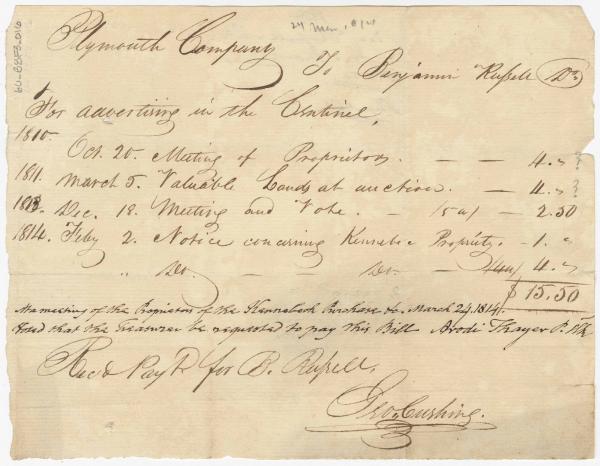 24 Mar. 1814
Plymouth Company
To Benjamin Russell Dr.
For advertising in the Centinel,
1810. Oct. 20. Meeting of Proprietors. — — 4. "
1811. March 5. Valuable Lands at auction. — 4. "
1813. Dec. 18. Meeting and Vote. — 15 a/ — 2.50
1814. Feby 2. Notice concerning Kennebec Propriety. — 1. "
" Do. — — Do. — 4. "
$ 15.50
At a meeting of the Proprietors of the Kennebeck Purchase &c. March 24, 1814.
Voted that the Treasurer be requested to pay this Bill Arodi Thayer P. Clk
Recd Payt for B. Russell,
Geo. Cushing.